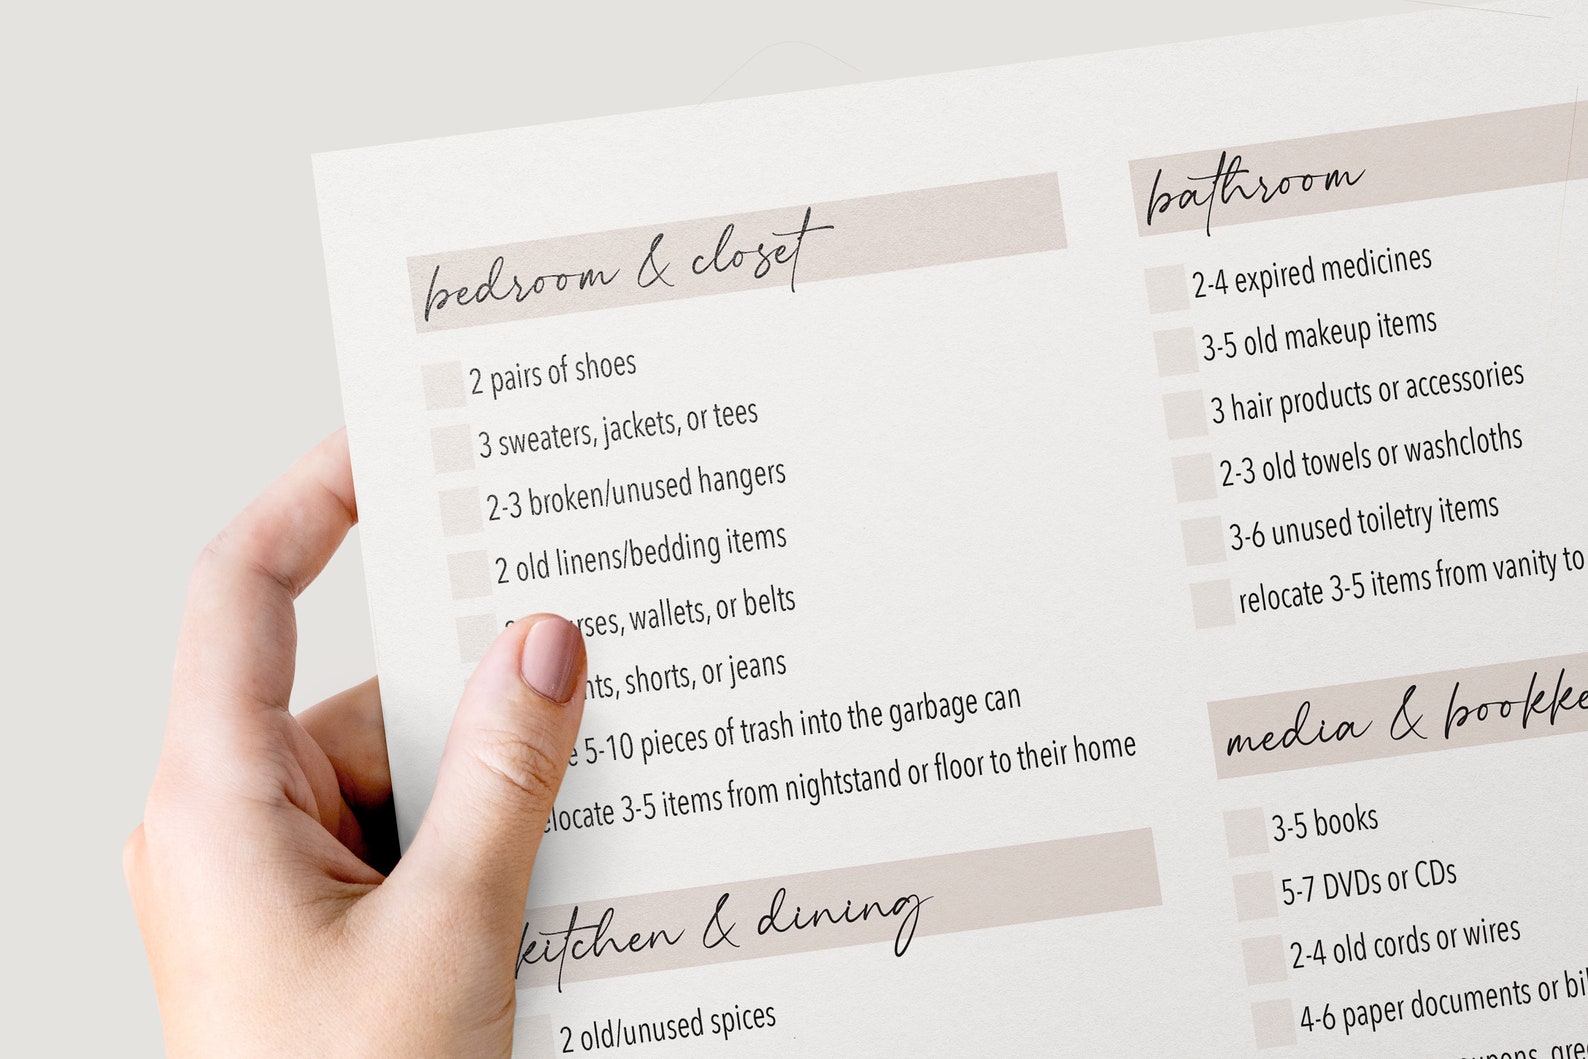 bedroom & closet
2 pairs of shoes
3 sweaters, jackets, or tees
2-3 broken/unused hangers
2 old linens/bedding items
wallets, or belts
shorts, or jeans
5-10 pieces of trash into the garbage can
3-5 items from nightstand or floor to their home
kitchen & dining
2 old/unused spices
bathroom
2-4 expired medicines
3-5 old makeup items
3 hair products or accessories
2-3 old towels or washcloths
3-6 unused toiletry items
relocate 3-5 items from vanity to
media &
3-5 books
5-7 DVDs or CDs
2-4 old cords or wires
4-6 paper documents or